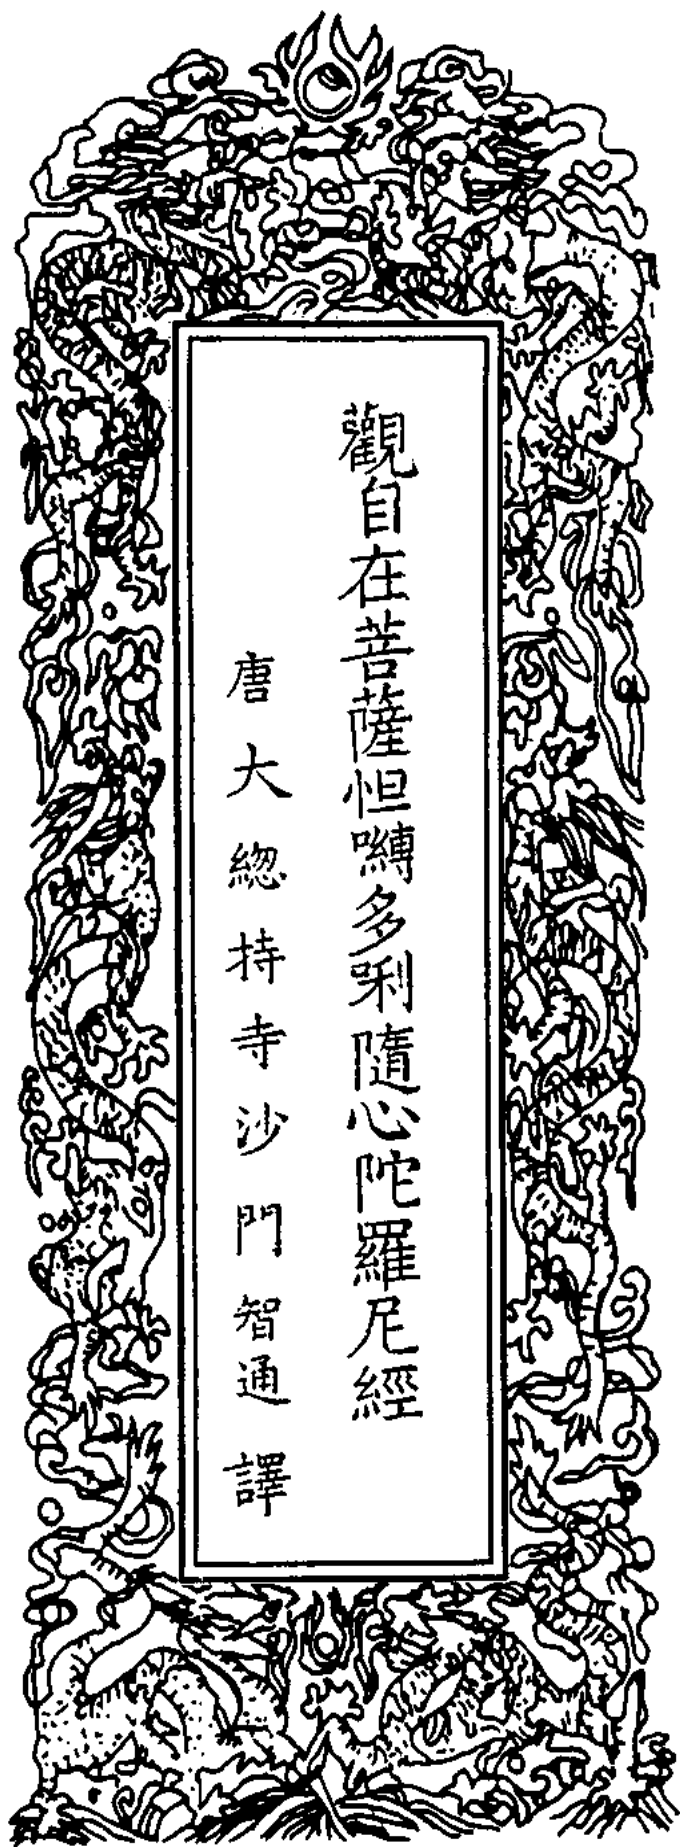 觀自在菩薩怛嚩多唎隨心陀羅尼經
唐大總持寺沙門智通譯